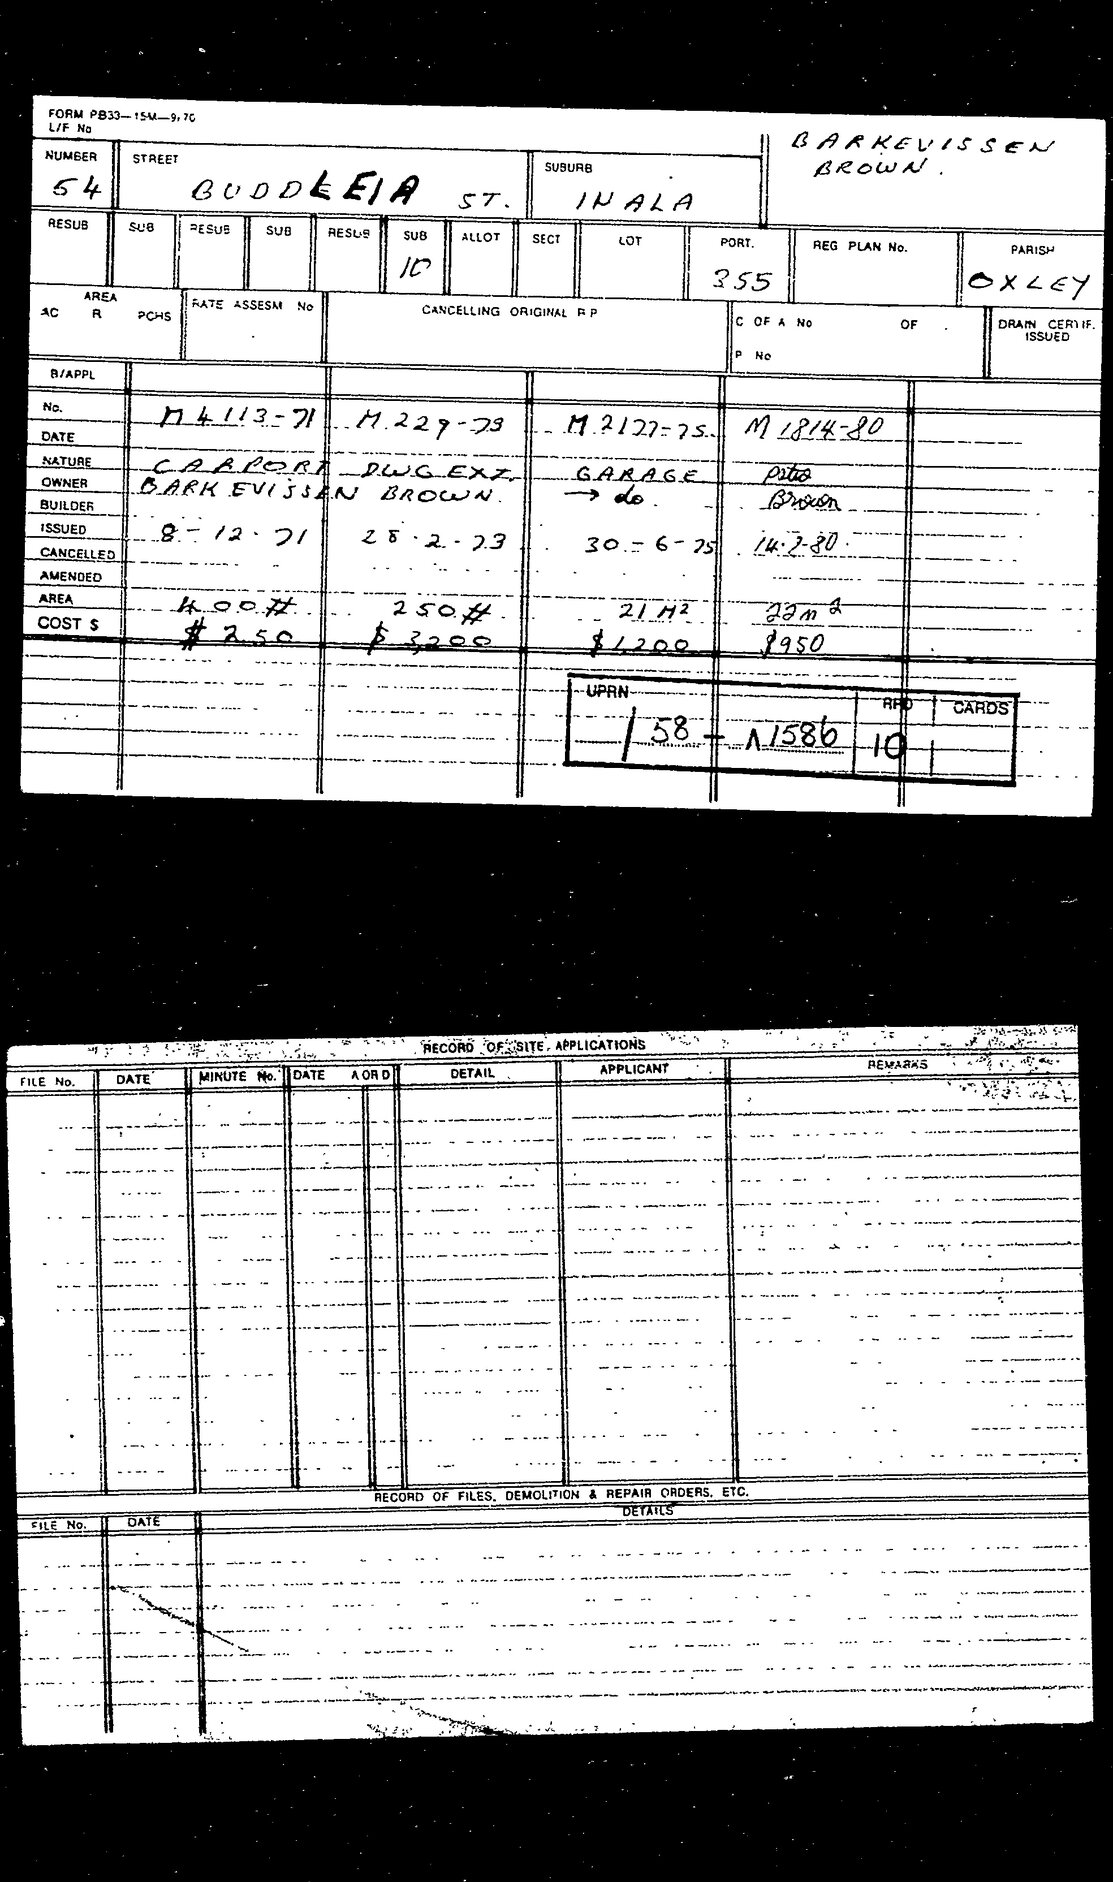 FORM PB33—15M—9/70
L/F No
BARKEVISSEN
BROWN.
NUMBER STREET SUBURB
54 BUDDLEIA ST. INALA
RESUB SUB RESUB SUB RESUB SUB ALLOT SECT LOT PORT. REG PLAN No. PARISH
10 355 OXLEY
AREA RATE ASSESM No CANCELLING ORIGINAL R P C OF A No OF DRAIN CERTIF. ISSUED
AC R PCHS
P No
B/APPL
No. M 4113-71 M.229-73 M.2177-75. M 1814-80
DATE
NATURE CARPORT DWG EXT. GARAGE patio
OWNER BARKEVISSEN BROWN. → do. Brown
BUILDER
ISSUED 8-12-71 28-2-73 30-6-75 14-7-80.
CANCELLED
AMENDED
AREA 400# 250# 21 M² 22m²
COST $ $ 250 $ 3,200 $1,200 $950
UPRN RPD CARDS
/ 58 - 1586 10
RECORD OF SITE APPLICATIONS
FILE No. DATE MINUTE No. DATE A OR D DETAIL APPLICANT REMARKS
RECORD OF FILES, DEMOLITION & REPAIR ORDERS, ETC.
FILE No. DATE DETAILS